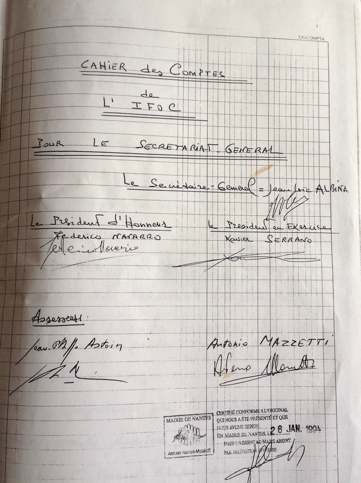 CAHIER des COMPTES
de
L' IFOC
POUR LE SECRETARIAT-GENERAL
Le Secrétaire-General = Jean-Loïc ALBINA
Le Président d'Honneur
Federico NAVARRO
Le President en Exercice
Xavier SERRANO
Assesseurs:
Jean-Phi. Astoin
Antonio MAZZETTI
MAIRIE DE NANTES
CERTIFIÉ CONFORME À L'ORIGINAL
QUI NOUS A ÉTÉ PRÉSENTÉ ET QUE
NOUS AVONS RENDU
EN MAIRIE DE NANTES, 28 JAN. 1994
POUR LE MAIRE ABSENT